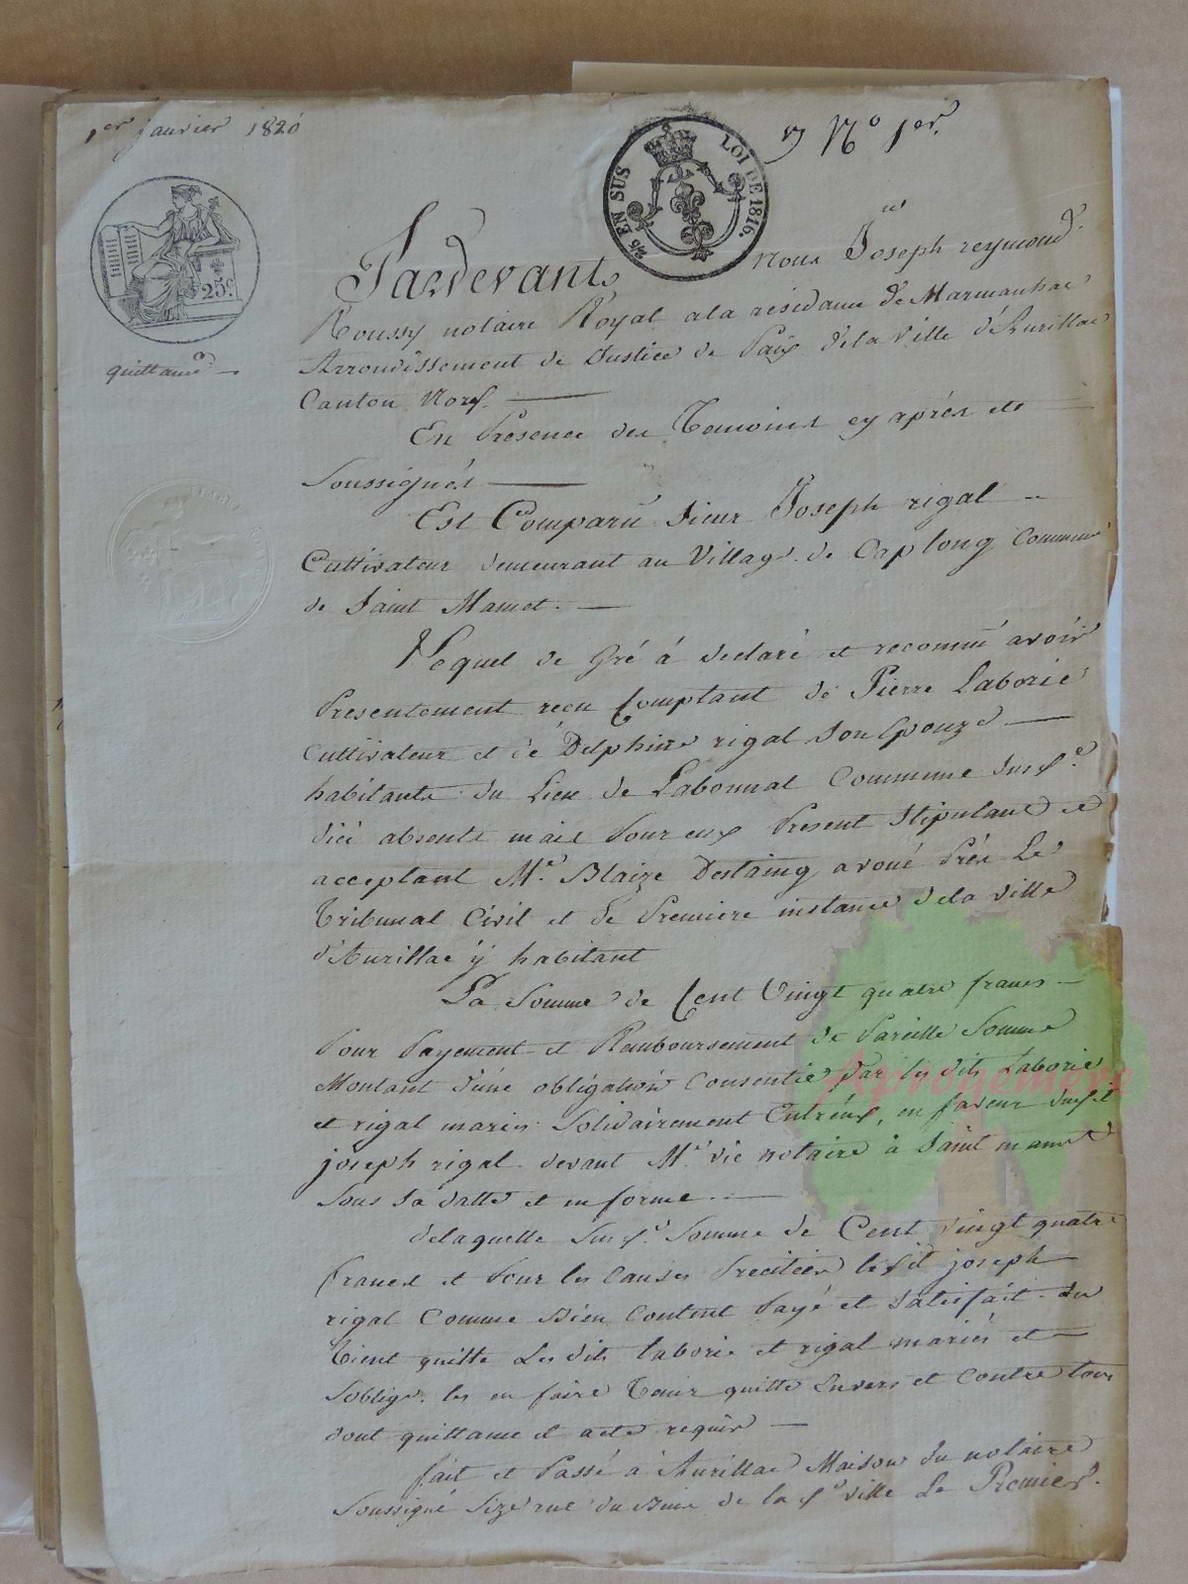 1er janvier 1820
N° 1er.
2/5 EN SUS
LOI DE 1816.
25c
quittance
Pardevant Nous Joseph reymond
Roussy notaire Royal a la residance de Marmanhac
Arrondissement de Justice de Paix dela ville d'Aurillac
Canton Nord.
En Presence des Temoins cy aprés et
Soussignés
Est Comparu sieur Joseph rigal
Cultivateur demeurant au Village de Caplong Commune
de Saint Mamet.
Lequel de gré á declaré et reconnu avoir
Presentement reçu Comptant de Pierre Laborie
Cultivateur et de Delphine rigal son Epouze
habitants du Lieu de Labonnat Commune susd.e
d'ici absents mais Pour eux Present Stipulant et
acceptant M.e Blaize Destaing avoué Prés Le
Tribunal Civil et de Premiere instance dela ville
d'Aurillac y habitant
La Somme de Cent Vingt quatre francs
Pour Payement et Remboursement de Pareille Somme
Montant d'une obligation Consentie Par les dits Laborie
et rigal mariés Solidairement Entr'eux, en faveur dudit
joseph rigal devant M.e vic notaire à Saint mamet
Sous sa datte et en forme.
delaquelle susd.e Somme de Cent vingt quatre
francs et Pour les Causes Precitées ledit joseph
rigal Comme Bien Content Payé et Satisfait. en
Tient quitte Les dits laborie et rigal mariés et
s'oblige les en faire Tenir quitte Envers et Contre tous
dont quittance et acte requis
fait et Passé à Aurillac Maison du notaire
Soussigné Size rue du Buis de la d.e ville Le Premier.
Aprogemere